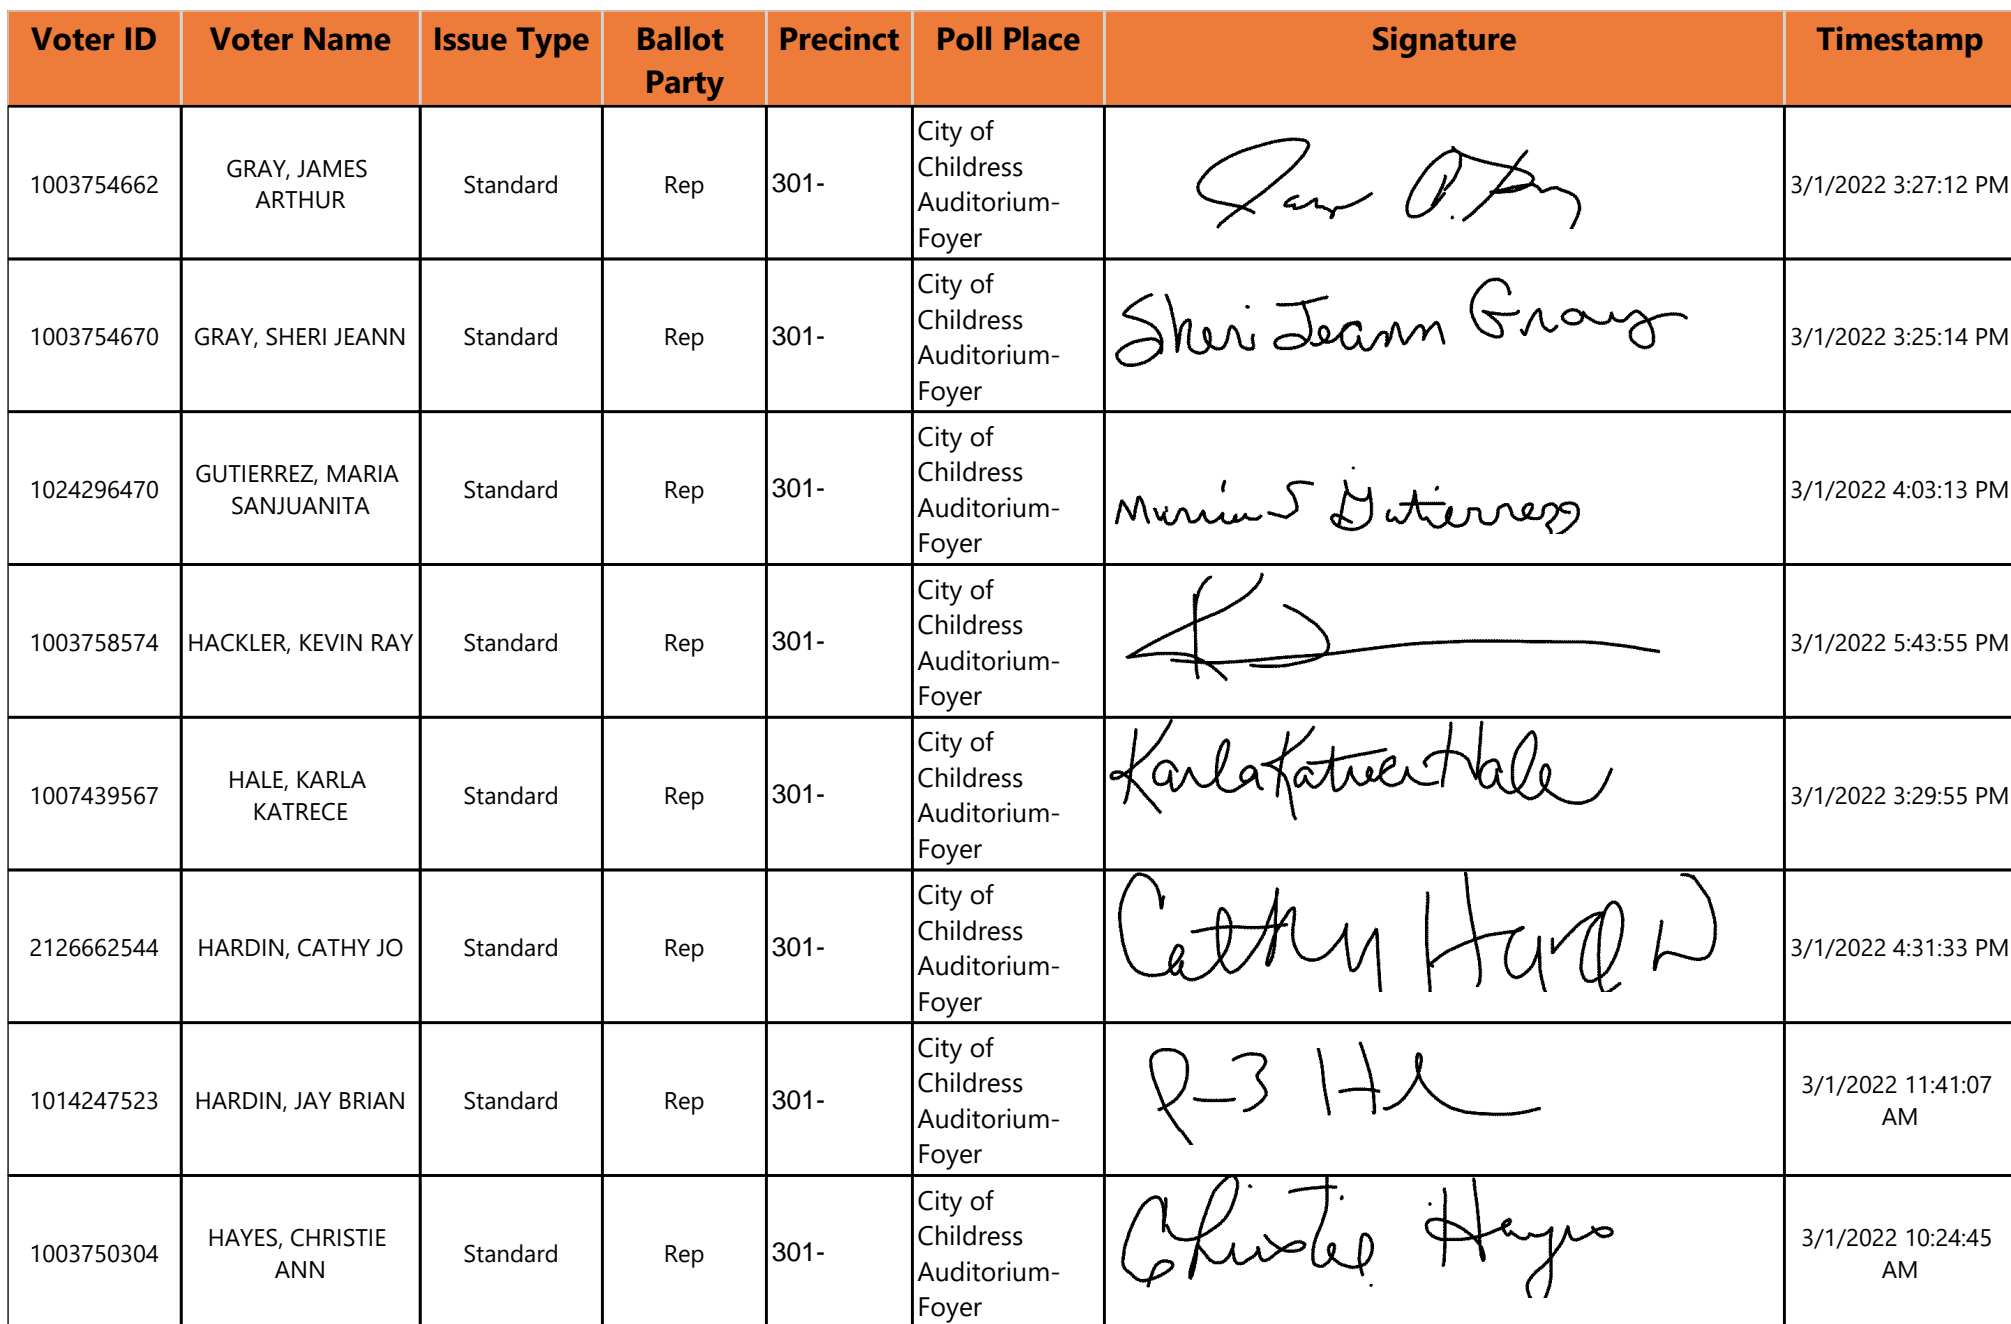 Voter ID Voter Name Issue Type Ballot Party Precinct Poll Place Signature Timestamp
1003754662 GRAY, JAMES ARTHUR Standard Rep 301- City of Childress Auditorium-Foyer 3/1/2022 3:27:12 PM
1003754670 GRAY, SHERI JEANN Standard Rep 301- City of Childress Auditorium-Foyer Sheri Jeann Gray 3/1/2022 3:25:14 PM
1024296470 GUTIERREZ, MARIA SANJUANITA Standard Rep 301- City of Childress Auditorium-Foyer Maria S Gutierrez 3/1/2022 4:03:13 PM
1003758574 HACKLER, KEVIN RAY Standard Rep 301- City of Childress Auditorium-Foyer 3/1/2022 5:43:55 PM
1007439567 HALE, KARLA KATRECE Standard Rep 301- City of Childress Auditorium-Foyer Karla Katrece Hale 3/1/2022 3:29:55 PM
2126662544 HARDIN, CATHY JO Standard Rep 301- City of Childress Auditorium-Foyer Cathy Hardin 3/1/2022 4:31:33 PM
1014247523 HARDIN, JAY BRIAN Standard Rep 301- City of Childress Auditorium-Foyer 3/1/2022 11:41:07 AM
1003750304 HAYES, CHRISTIE ANN Standard Rep 301- City of Childress Auditorium-Foyer Christie Hayes 3/1/2022 10:24:45 AM